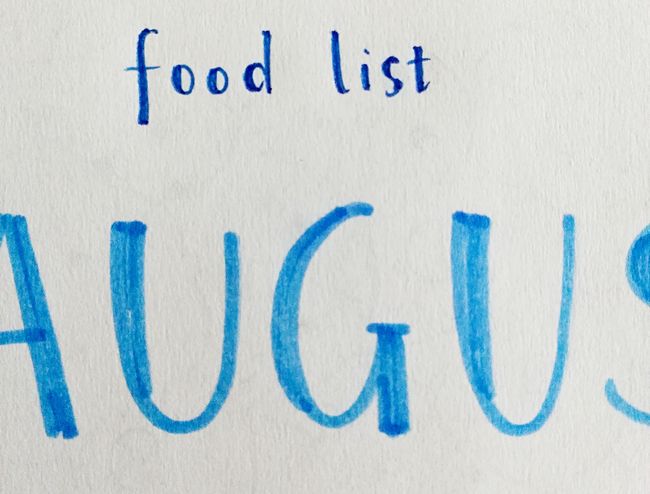 food list
AUGUS